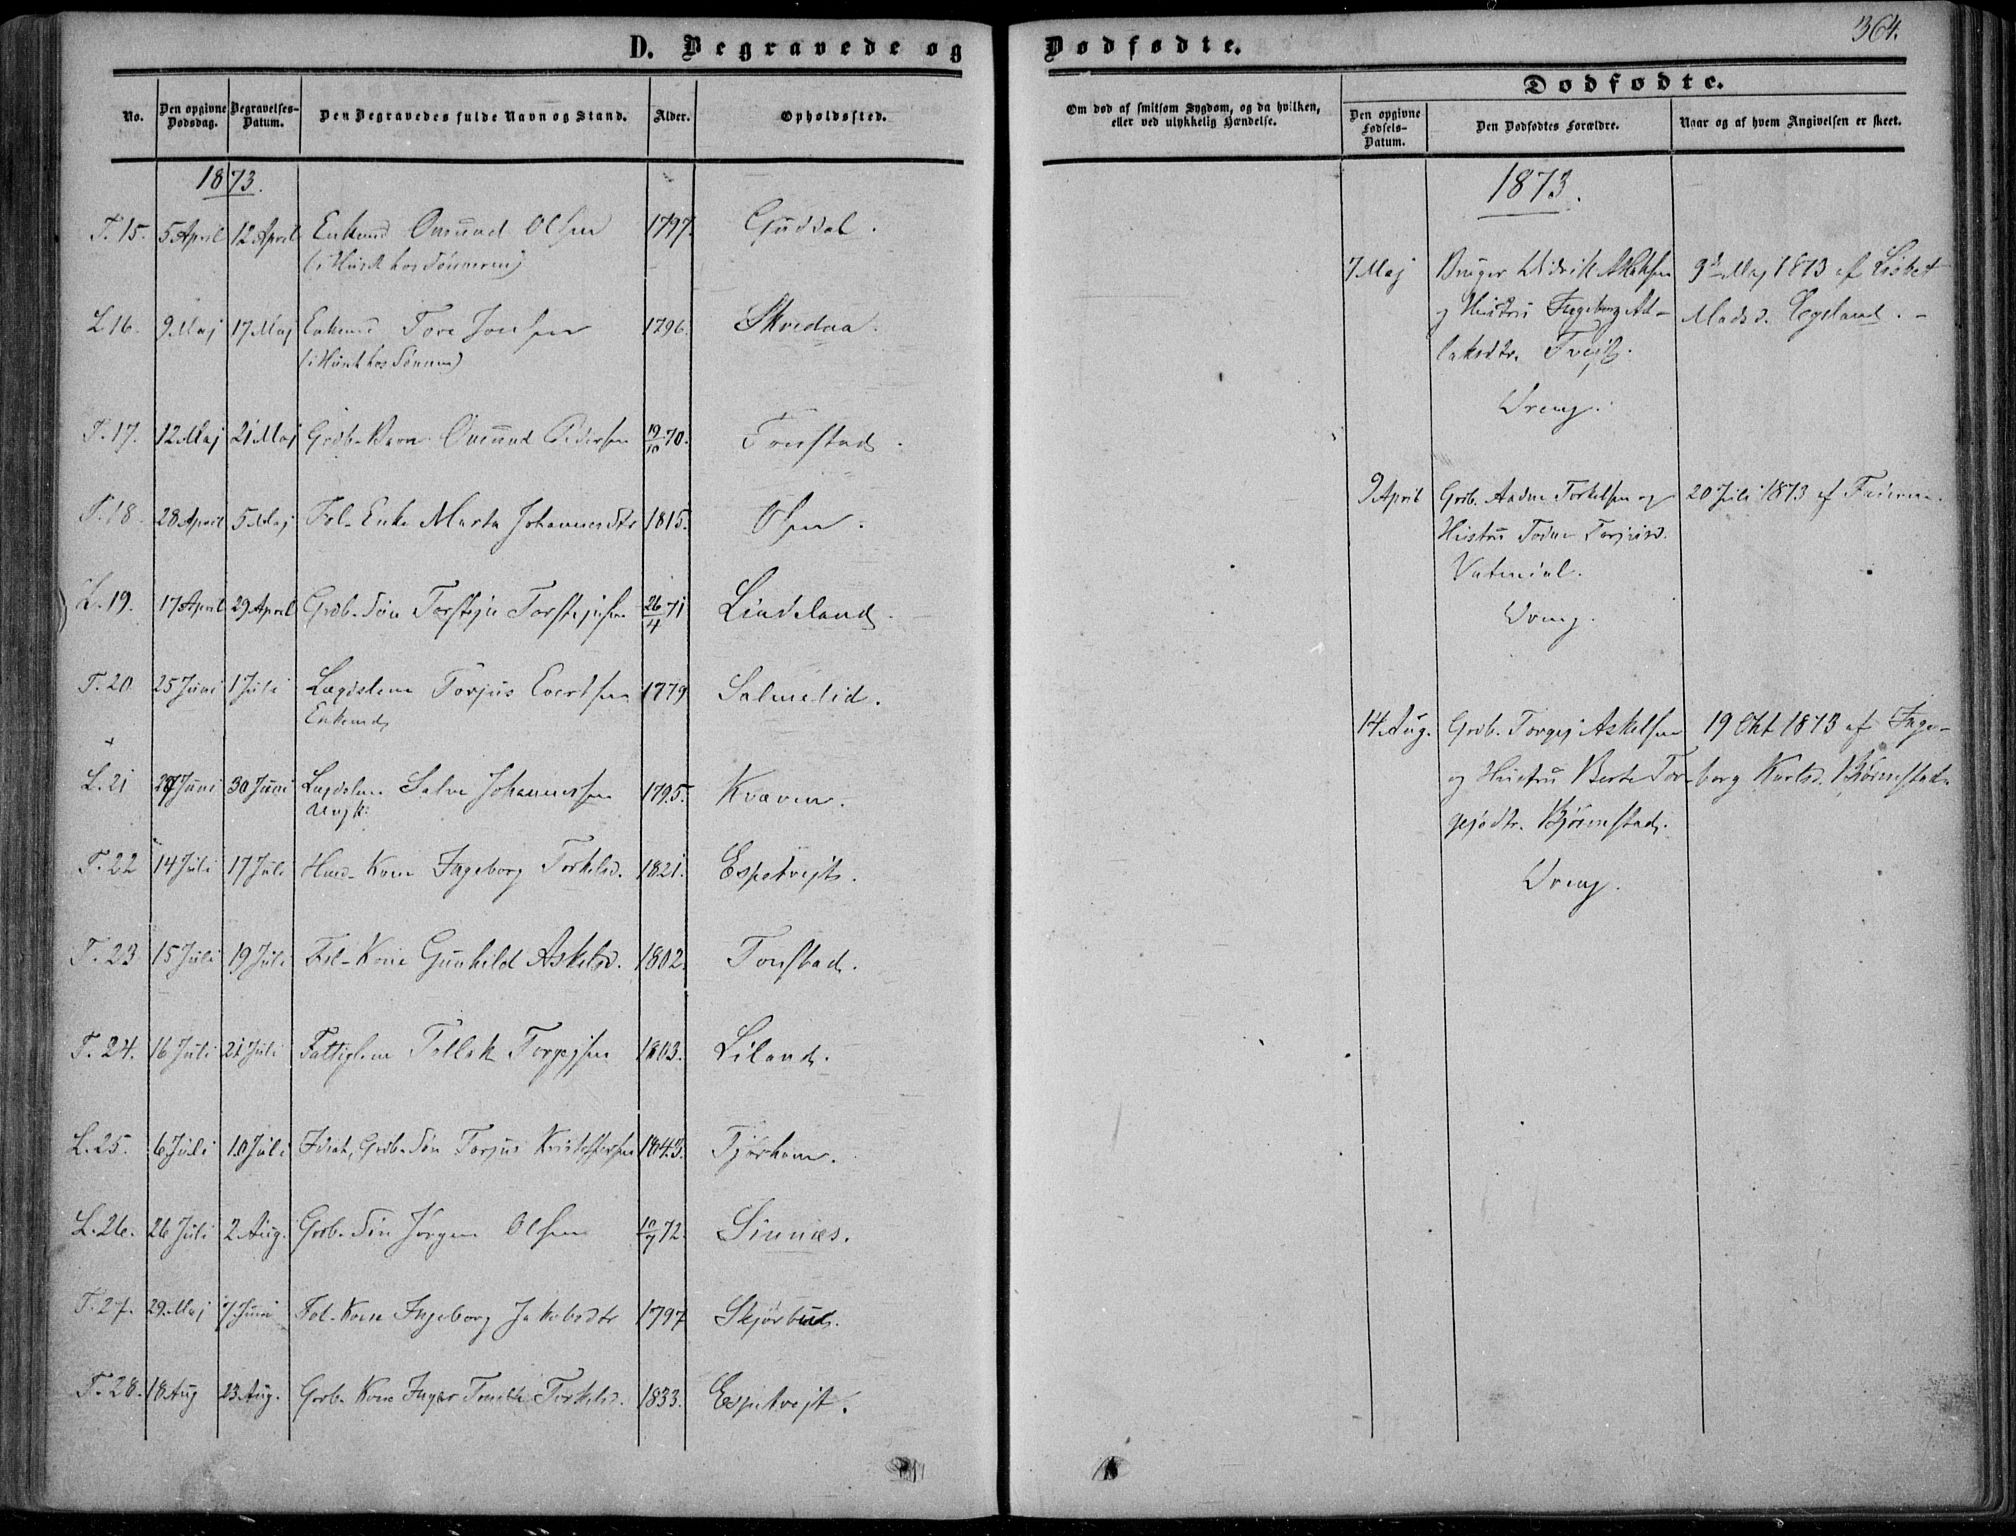 364.
D. Begravede og Dødfødte.
No.
Den opgivne Dødsdag.
Begravelses-Datum.
Den Begravedes fulde Navn og Stand.
Alder.
Opholdssted.
Om død af smitsom Sygdom, og da hvilken,
eller ved ulykkelig Hændelse.
Dødfødte.
Den opgivne Fødsels-Datum.
Den Dødfødtes Forældre.
Naar og af hvem Angivelsen er skeet.
1873.
T. 15. 5 April 12 April Enkemd Omund Olsen 1797. Guddal.
(i Huset hos Sønneren)
L. 16. 9 Maj 17 Maj Enkemd Tore Jonsen 1796. Skredaa.
(i Huset hos Sønnen)
T. 17. 12 Maj 21 Maj Grdb. Barn Omund Pedersen 19/10 70. Tonstad.
T. 18. 28 April 5 Maj Fol. Enke Marta Johannesdtr 1815. Osen.
L. 19. 17 April 29 April Grdb. Søn Torstejn Torstejnsen 26/4 71 Lindeland.
T. 20 25 Juni 1 Juli Lægdslem Torjus Evertsen 1779 Salmelid.
Enkemd,
L. 21 Juni 30 Juni Lægdslem Salve Johannessen 1795. Kvæven.
Ungk:
T. 22 14 Juli 17 Juli Husd. Kone Ingeborg Torkelsd. 1821. Espetvejt.
T. 23 15 Juli 19 Juli Fol. Kone Gunhild Askelsd. 1802. Tonstad.
T. 24. 16 Juli 21 Juli Fattiglem Tollak Torgejsen 1803. Liland.
L. 25. 6 Juli 10 Juli Idiot, Grdb. Søn Torjus Kristoffersen 1843. Tjørhom.
L. 26. 26 Juli 2 Aug. Grdb. Søn Jørgen Olsen 10/7 72. Sinnæs.
T. 27. 29 Maj 7 Juni Fol. Kone Ingeborg Jakobsdtr 1797 Skjørbud.
T. 28. 18 Aug 23 Aug. Grdb. Kone Inger Torkelsd. 1833. Espetvejt.
1873.
7 Maj Bruger Didrik Aslaksen 9de Maj 1873 af Lisbet
og Hustru Ingeborg As- Madsd. Egeland.
laksdtr. Tvejt.
Dreng.
9 April Grdb. Aadne Torkelsen og 20 Juli 1873 af Faderen.
Hustru Todne Torjusd.
Vatnedal.
Dreng.
14 Aug. Grdb. Torgej Askelsen 19 Okt 1873 af Inge-
og Hustru Berte Tor- borg Kortsd. Bjørnestad.
gejsdtr. Bjørnestad.
Dreng.